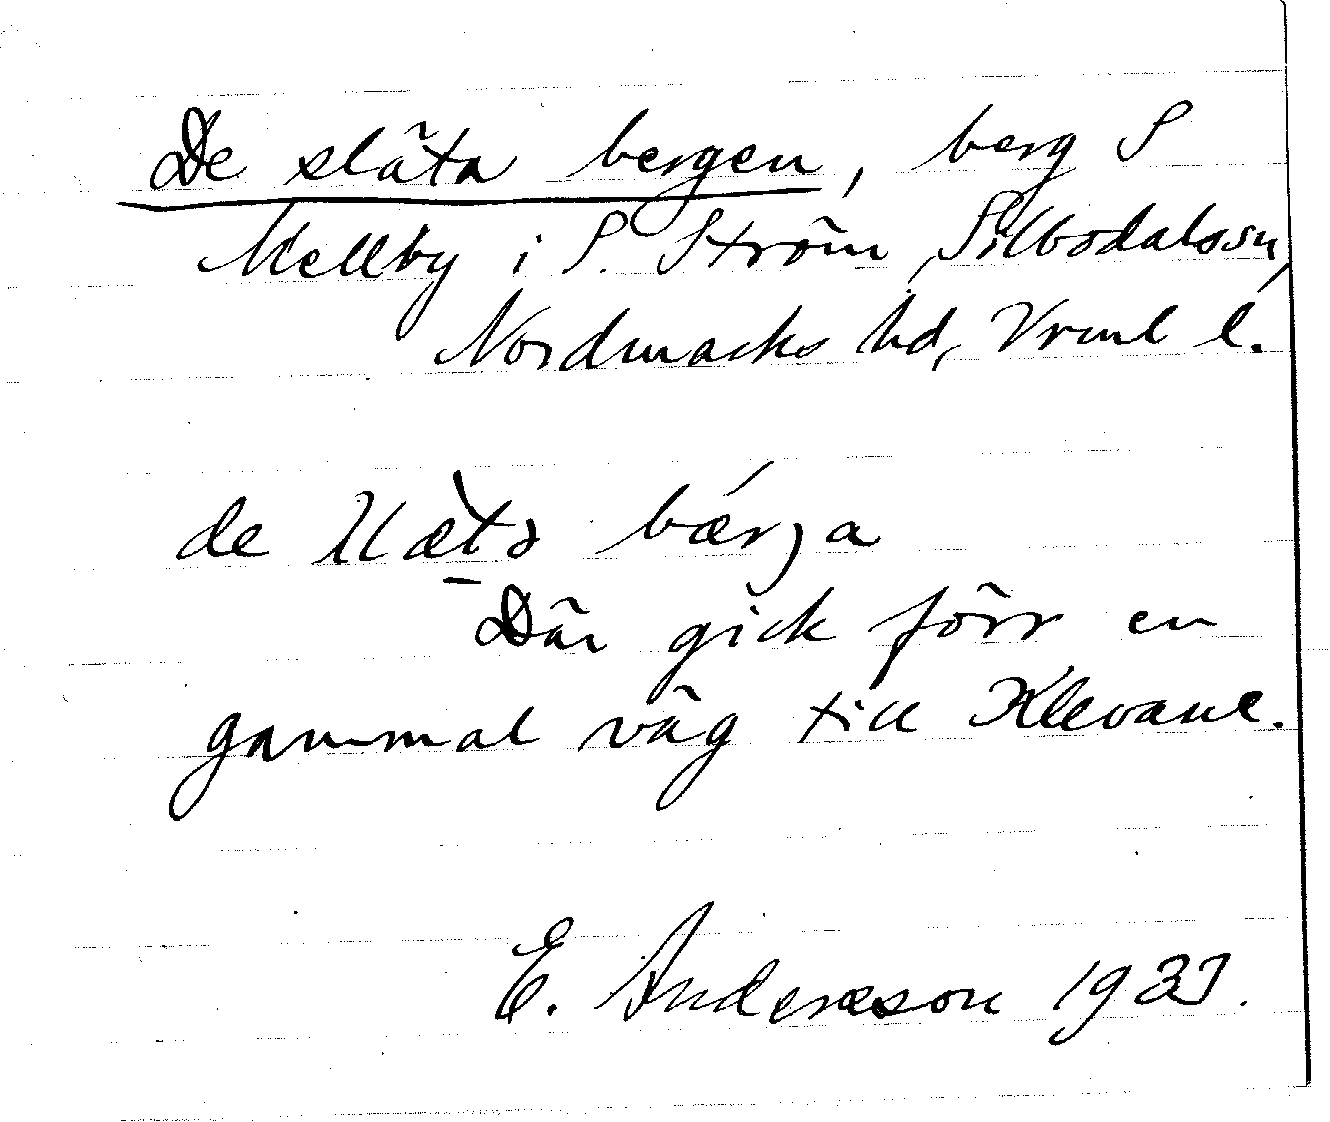 De släta bergen, berg S
Mellby i S. Ström, Silbodalssn,
Nordmarks hd, Vrml l.
de bærja
Där gick förr en
gammal väg till Klevane.
E. Andersson 1937.